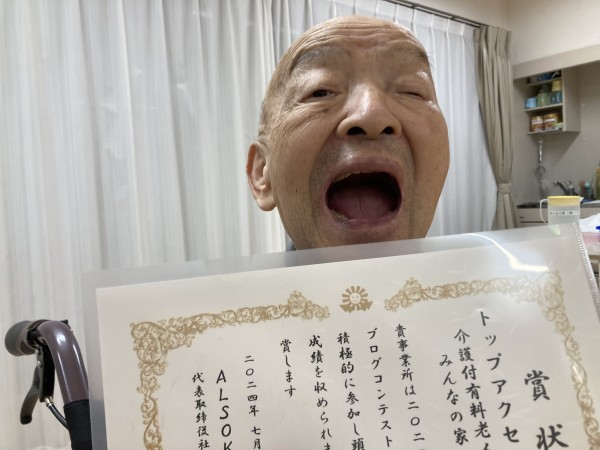 賞状
トップアクセ
介護付有料老人
みんなの家
貴事業所は二〇二
ブログコンテスト
積極的に参加し頭
成績を収められま
賞します
二〇二四年 七月
ALSOK
代表取締役社